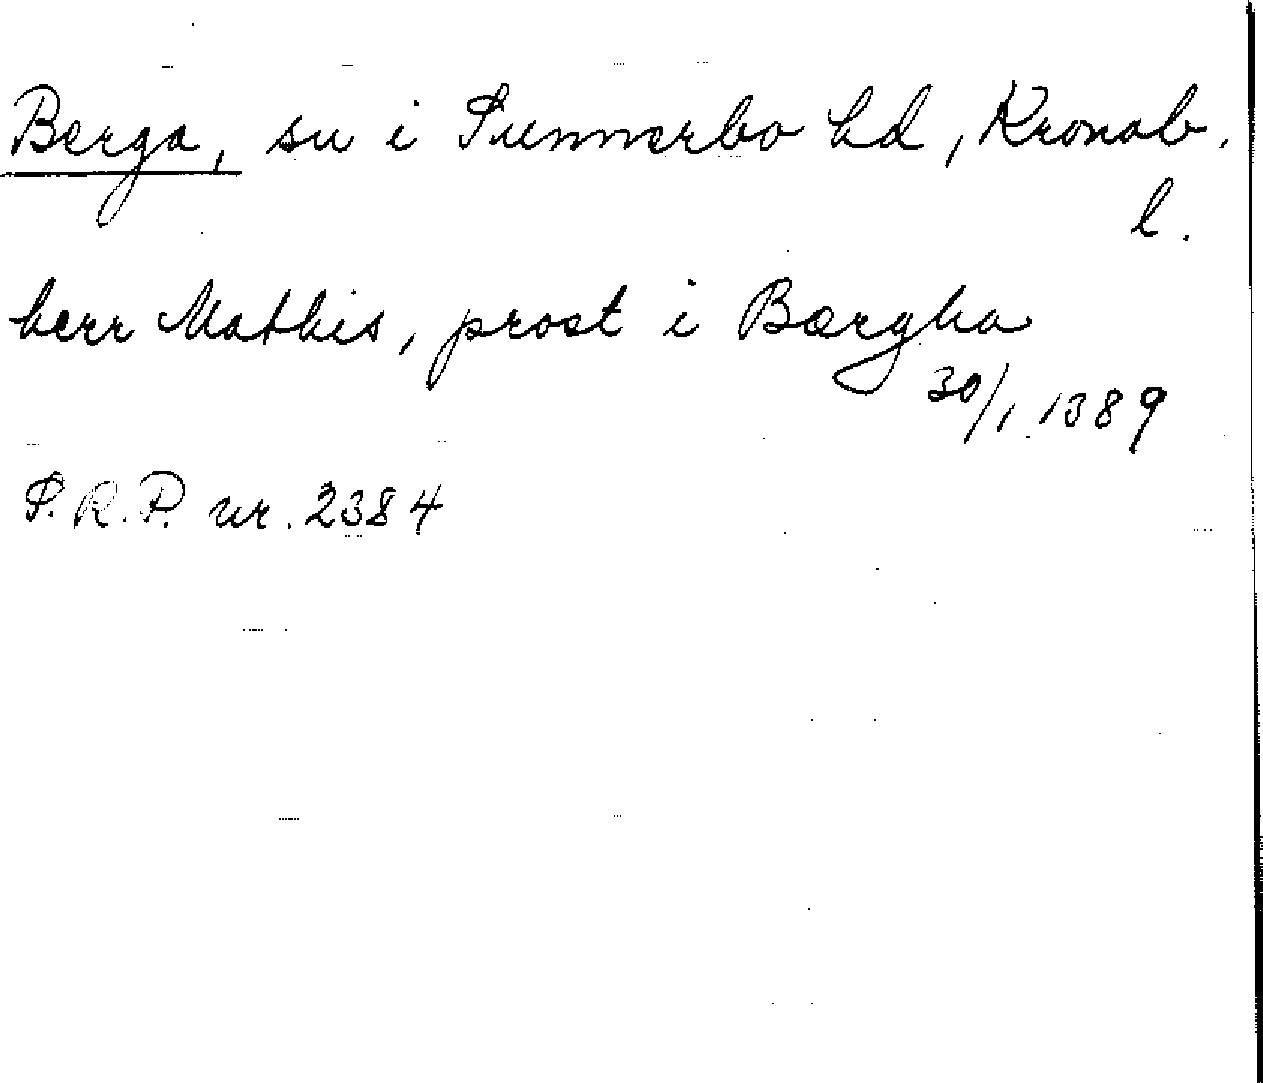 Berga, sn i Sunnerbo hd, Kronob.
l.
herr Mathis, prost i Bærgha
30/1 1389
S.R.P. nr. 2384